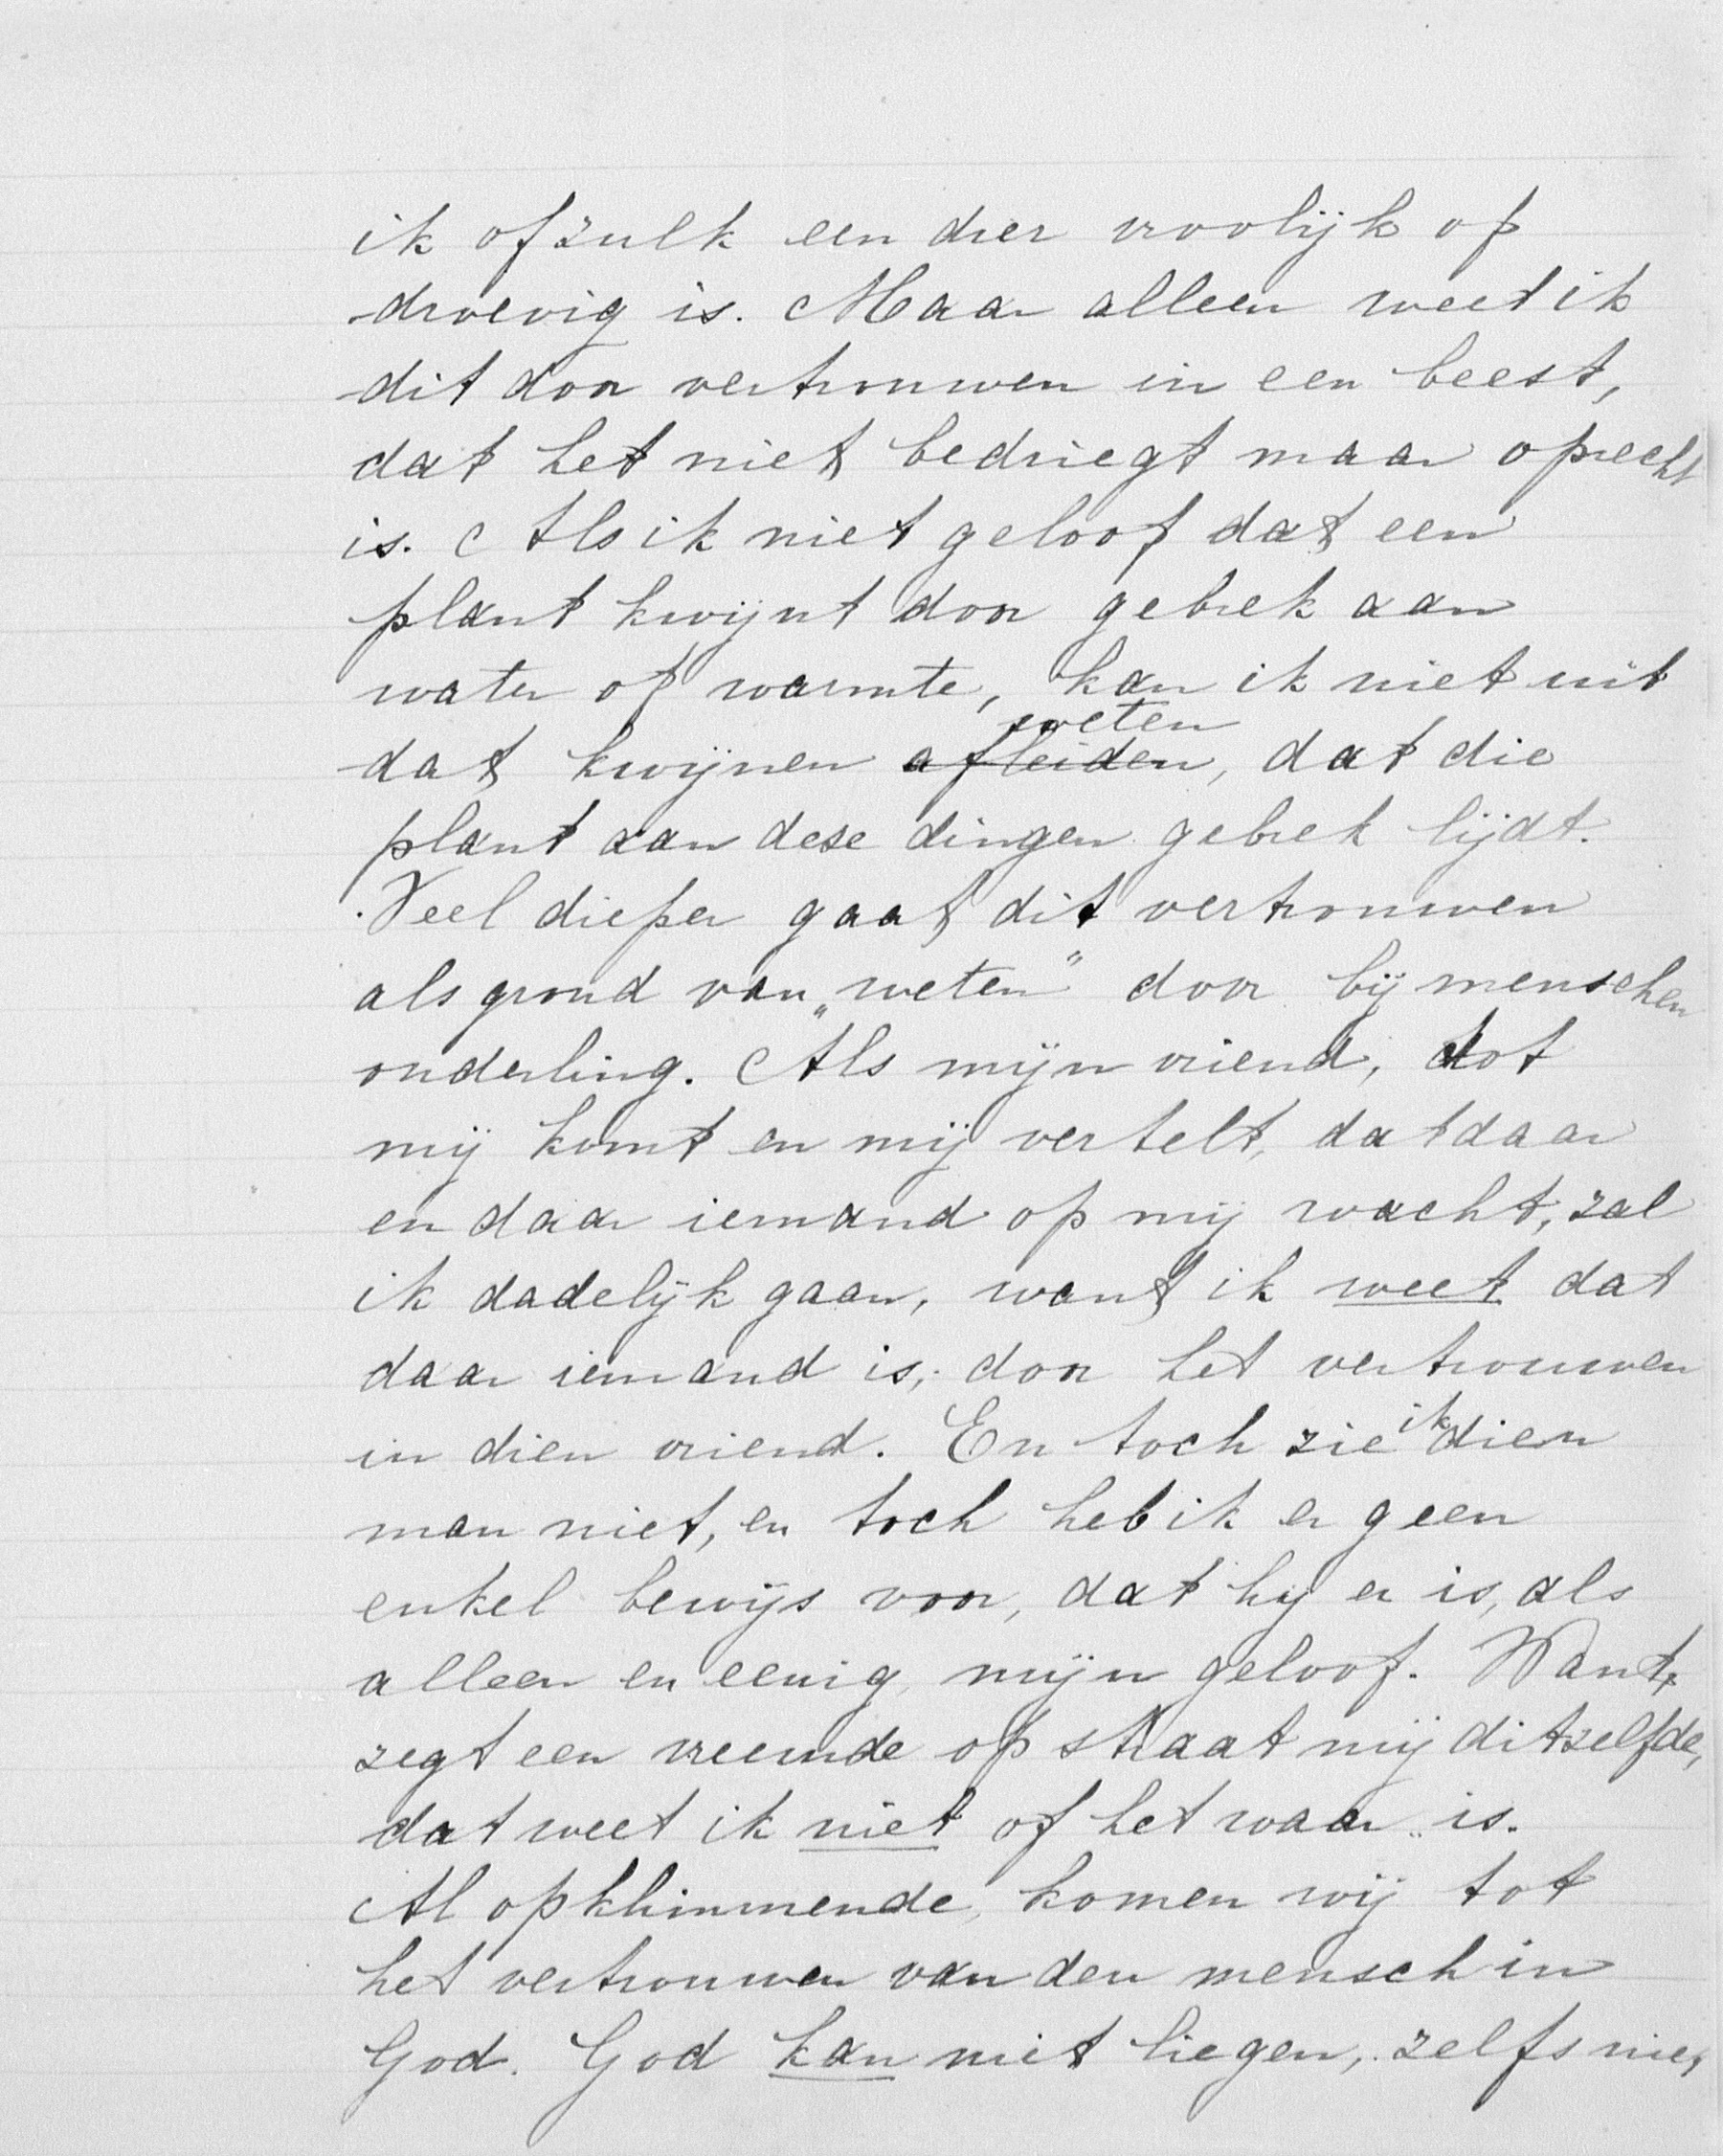 ik of zulk een dier vroolijk op
droevig is. Maar alleen weet ik
dit door vertrouwen in een beest,
dat het niet bedriegt maar oprecht
is. Als ik niet geloof dat een
plant kwijnt door gebrek aan
water of warmte, kan ik niet uit
weten
dat kwijnen afleiden, dat die
plant aan deze dingen gebrek lijdt.
Veel dieper gaat dit vertrouwen
als grond van „weten" door bij menschen
onderling. Als mijn vriend, tot
mij komt en mij vertelt, dat daar
en daar iemand op mij wacht, zal
ik dadelijk gaan, want ik weet dat
daar iemand is, door het vertrouwen
in dien vriend. En toch zie ik dien
man niet, en toch heb ik er geen
enkel bewijs voor, dat hij er is, als
alleen en eenig, mijn geloof. Want
zegt een vreemde op straat mij ditzelfde,
dat weet ik niet of het waar is.
Al opklimmende, komen wij tot
het vertrouwen van den mensch in
God. God kan niet liegen, zelfs niet